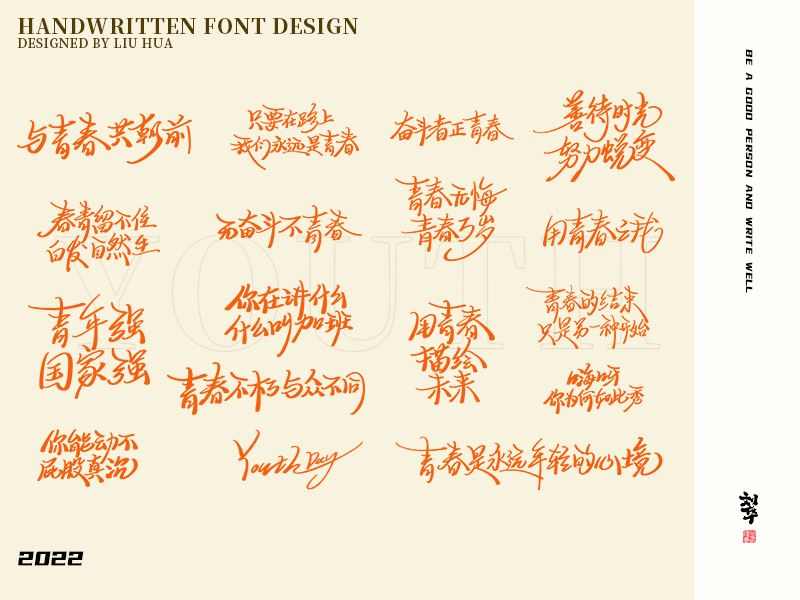 HANDWRITTEN FONT DESIGN
DESIGNED BY LIU HUA
与青春共朝前
只要在路上
我们永远是青春
奋斗者正青春
善待时光
努力蜕变
春青留不住
白发自然生
无奋斗不青春
青春无悔
青春万岁
用青春云我
YOUTH
青年强
国家强
你在讲什么
什么叫加班
用青春
描绘
未来
青春的结束
只是另一种开始
青春不朽与众不同
嗨呀
你为何如此秀
你能动不
屁股真沉
Youth Day
青春是永远年轻的心境
2022
BE A GOOD PERSON AND WRITE WELL
刘华